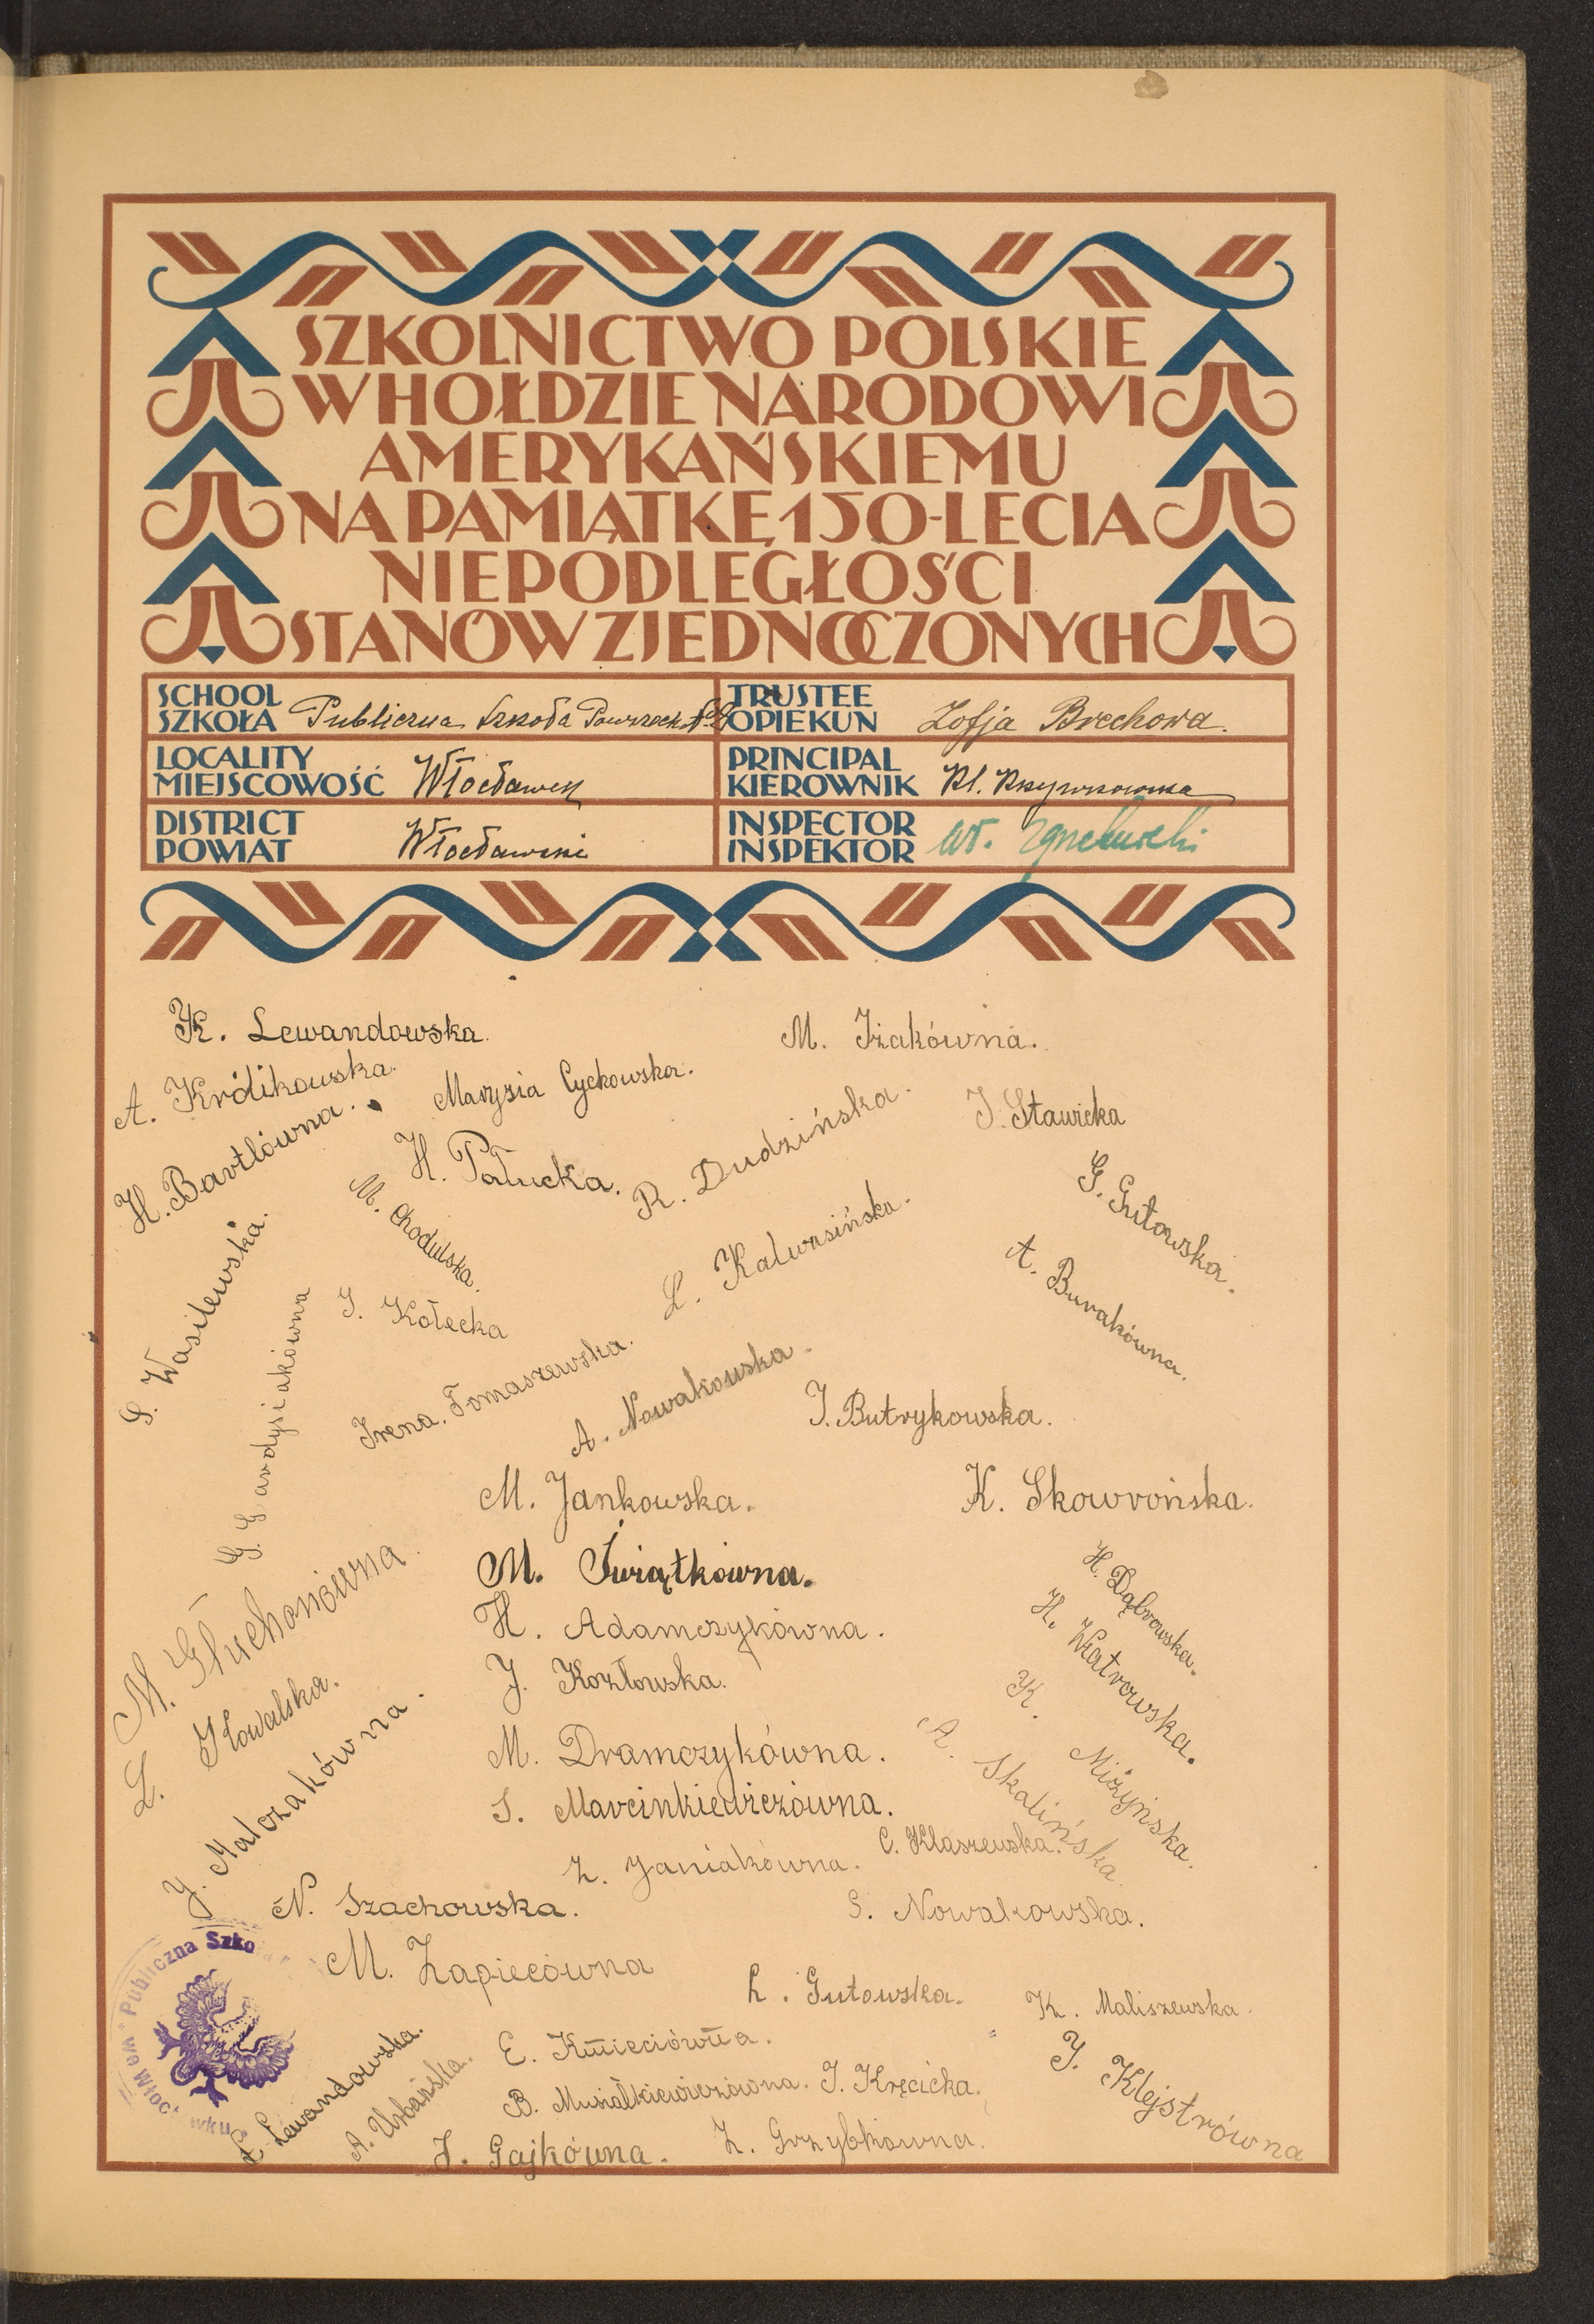 SZKOLNICTWO POLSKIE
W HOŁDZIE NARODOWI
AMERYKAŃSKIEMU
NA PAMIĄTKĘ 150-LECIA
NIEPODLEGŁOŚCI
STANÓW ZJEDNOCZONYCH
SCHOOL
SZKOŁA Publiczna Szkoła Powszech.
TRUSTEE
OPIEKUN Zofja Brechowa.
LOCALITY
MIEJSCOWOŚĆ Włocławek
PRINCIPAL
KIEROWNIK Kl.
DISTRICT
POWIAT Włocławski
INSPECTOR
INSPEKTOR Wł.
K. Lewandowska
M. Iżakówna.
A. Królikowska.
Marysia Cyckowska.
H. Bartlówna.
H. Pałucka.
R. Dudzińska.
J. Stawicka
M. Chodulska.
G. Gutowska.
S. Wasilewska.
L. Kalwasińska.
A. Burakówna.
J. Kołecka
G. Gardysiakówna
Irena. Tomaszewska.
A. Nowakowska.
J. Butrykowska.
M. Jankowska.
K. Skowrońska.
M. Świątkówna.
H. Dąbrowska.
M. Głuchonówna
H. Adamczykówna.
H. Wiatrowska.
L. Kowalska.
J. Kozłowska.
K. Miżyńska.
J. Malczakówna.
M. Dramczykówna.
A. Skalińska.
S. Marcinkiewiczówna.
Z. Janiakówna.
C. Klaszewska.
N. Szachowska.
S. Nowakowska.
M. Łapiecówna
L. Gutowska.
K. Maliszewska.
Publiczna Szko
we Włocławku
Lewandowska.
A. Urbańska.
E. Kmieciówna.
B. Musiałkiewiczówna.
J. Kręcicka.
J. Klejstrówna
J. Gajkówna.
Z. Grzybkówna.